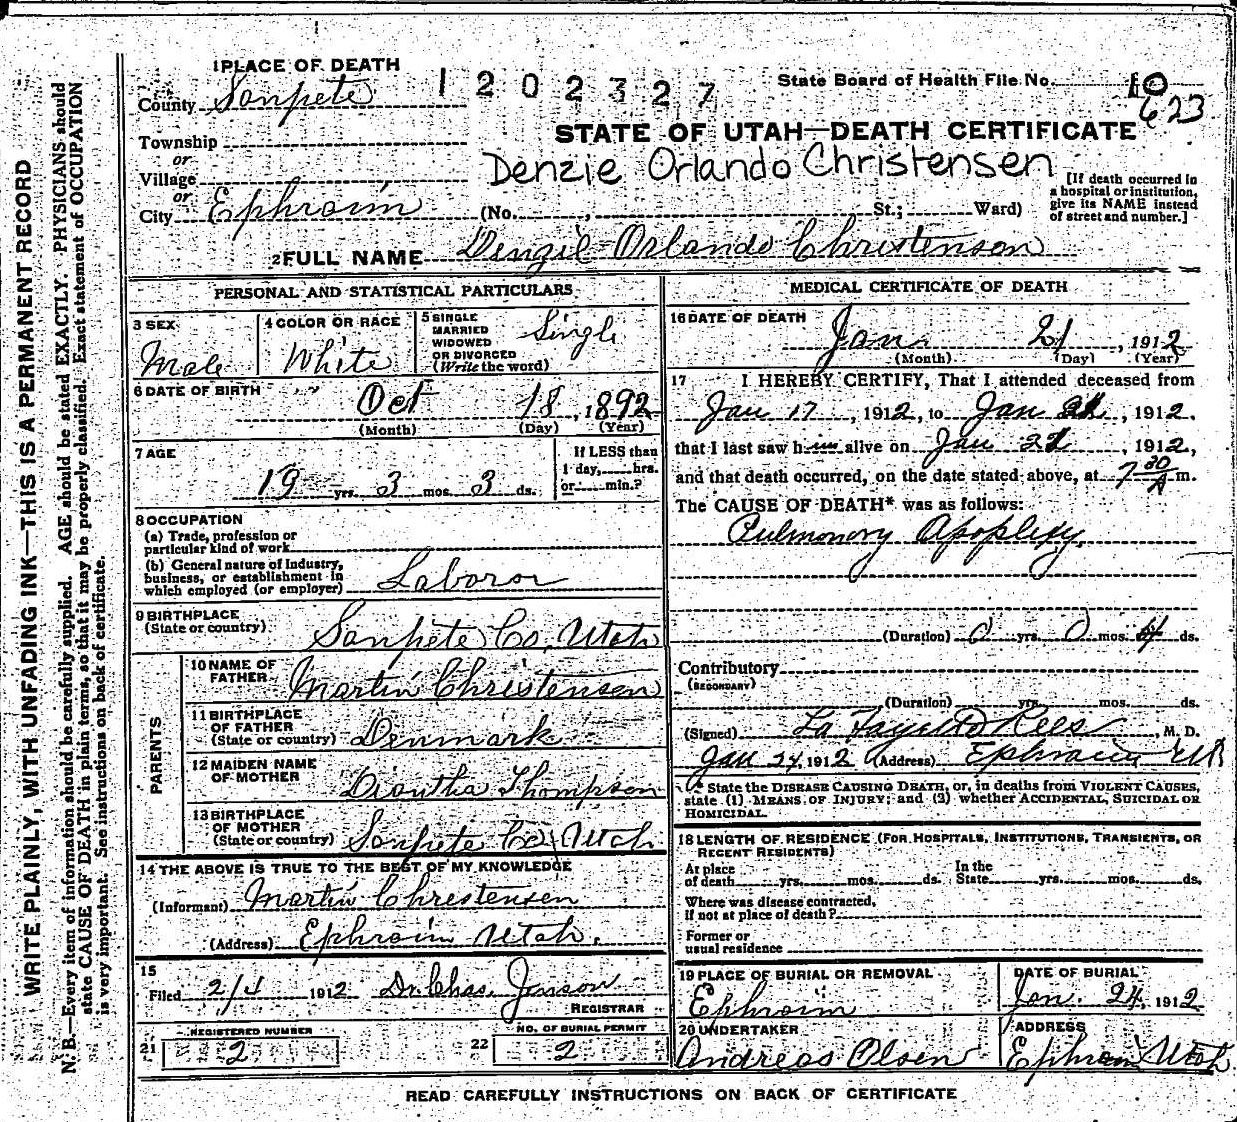 WRITE PLAINLY, WITH UNFADING INK—THIS IS A PERMANENT RECORD
N. B.—Every item of information should be carefully supplied. AGE should be stated EXACTLY. PHYSICIANS should
state CAUSE OF DEATH in plain terms, so that it may be properly classified. Exact statement of OCCUPATION
is very important. See instructions on back of certificate.
1 PLACE OF DEATH
1202327
State Board of Health File No. 10
623
County Sanpete
STATE OF UTAH—DEATH CERTIFICATE
Township
or
Village
or
Denzie Orlando Christensen
[If death occurred in
a hospital or institution,
give its NAME instead
of street and number.]
City Ephraim (No. , St.; Ward)
2 FULL NAME Denzil Orlando Christenson
PERSONAL AND STATISTICAL PARTICULARS
3 SEX
Male
4 COLOR OR RACE
White
5 SINGLE
MARRIED
WIDOWED
OR DIVORCED
(Write the word)
Single
6 DATE OF BIRTH
Oct 18, 1892
(Month) (Day) (Year)
7 AGE
19 yrs. 3 mos. 3 ds.
If LESS than
1 day, hrs.
or min.?
8 OCCUPATION
(a) Trade, profession or
particular kind of work
(b) General nature of Industry,
business, or establishment in
which employed (or employer) Laboror
9 BIRTHPLACE
(State or country) Sanpete Co, Utah
PARENTS
10 NAME OF
FATHER Martin Christensen
11 BIRTHPLACE
OF FATHER
(State or country) Denmark
12 MAIDEN NAME
OF MOTHER Diantha Thompson
13 BIRTHPLACE
OF MOTHER
(State or country) Sanpete Co Utah
14 THE ABOVE IS TRUE TO THE BEST OF MY KNOWLEDGE
(Informant) Martin Christensen
(Address) Ephraim Utah.
15
Filed 2/4 1912 Dr. Chas. Jenson
REGISTRAR
REGISTERED NUMBER
21 2
NO. OF BURIAL PERMIT
22 2
MEDICAL CERTIFICATE OF DEATH
16 DATE OF DEATH
Jan. 21, 1912
(Month) (Day) (Year)
17 I HEREBY CERTIFY, That I attended deceased from
Jan 17, 1912, to Jan 21, 1912,
that I last saw him alive on Jan 21, 1912,
and that death occurred, on the date stated above, at 7 30 A m.
The CAUSE OF DEATH* was as follows:
Pulmonary Apoplexy.
(Duration) 0 yrs. 0 mos. 4 ds.
Contributory
(SECONDARY)
(Duration) yrs. mos. ds.
(Signed) La Fayette Rees, M. D.
Jan 24, 1912 (Address) Ephraim Ut
* State the DISEASE CAUSING DEATH, or, in deaths from VIOLENT CAUSES,
state (1) MEANS OF INJURY; and (2) whether ACCIDENTAL, SUICIDAL OR
HOMICIDAL.
18 LENGTH OF RESIDENCE (FOR HOSPITALS, INSTITUTIONS, TRANSIENTS, OR
RECENT RESIDENTS)
At place
of death yrs. mos. ds.
In the
State yrs. mos. ds.
Where was disease contracted,
if not at place of death?
Former or
usual residence
19 PLACE OF BURIAL OR REMOVAL
Ephraim
DATE OF BURIAL
Jan. 24, 1912
20 UNDERTAKER
Andreas Olsen
ADDRESS
Ephraim Utah
READ CAREFULLY INSTRUCTIONS ON BACK OF CERTIFICATE